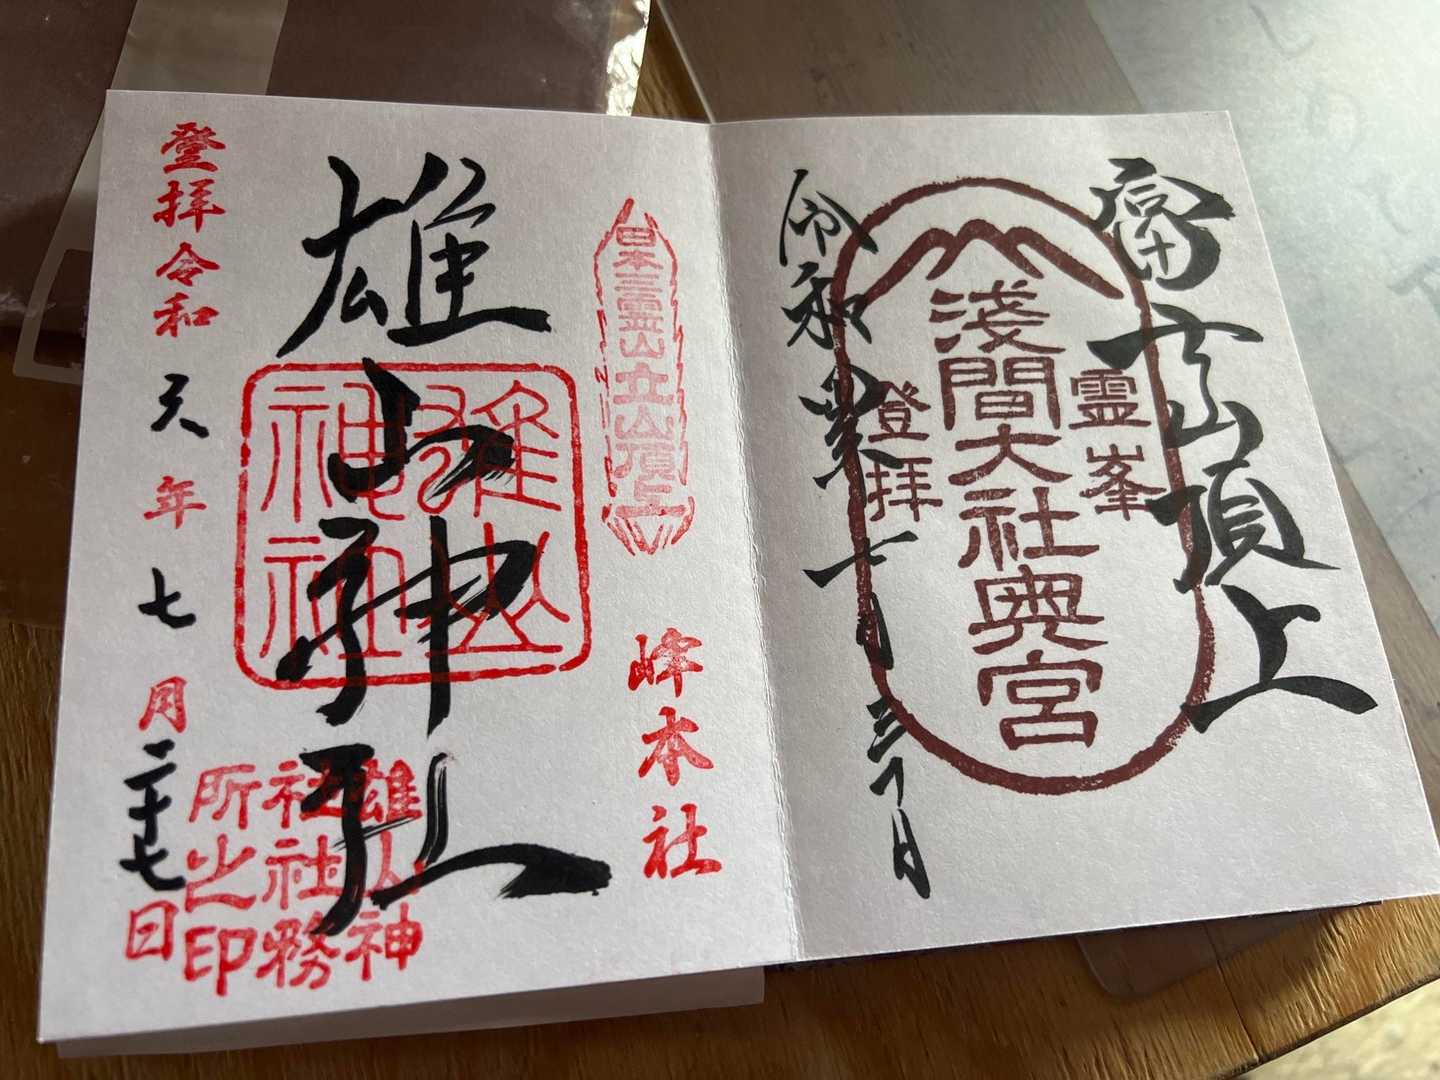 富士山頂上
霊峯
淺間大社奥宮
登拝
令和
七月三十日
日本三霊山立山頂上
峰本社
雄山神社
雄山
神社
雄山神
社社務
所之印
登拝令和
年七月二十七日